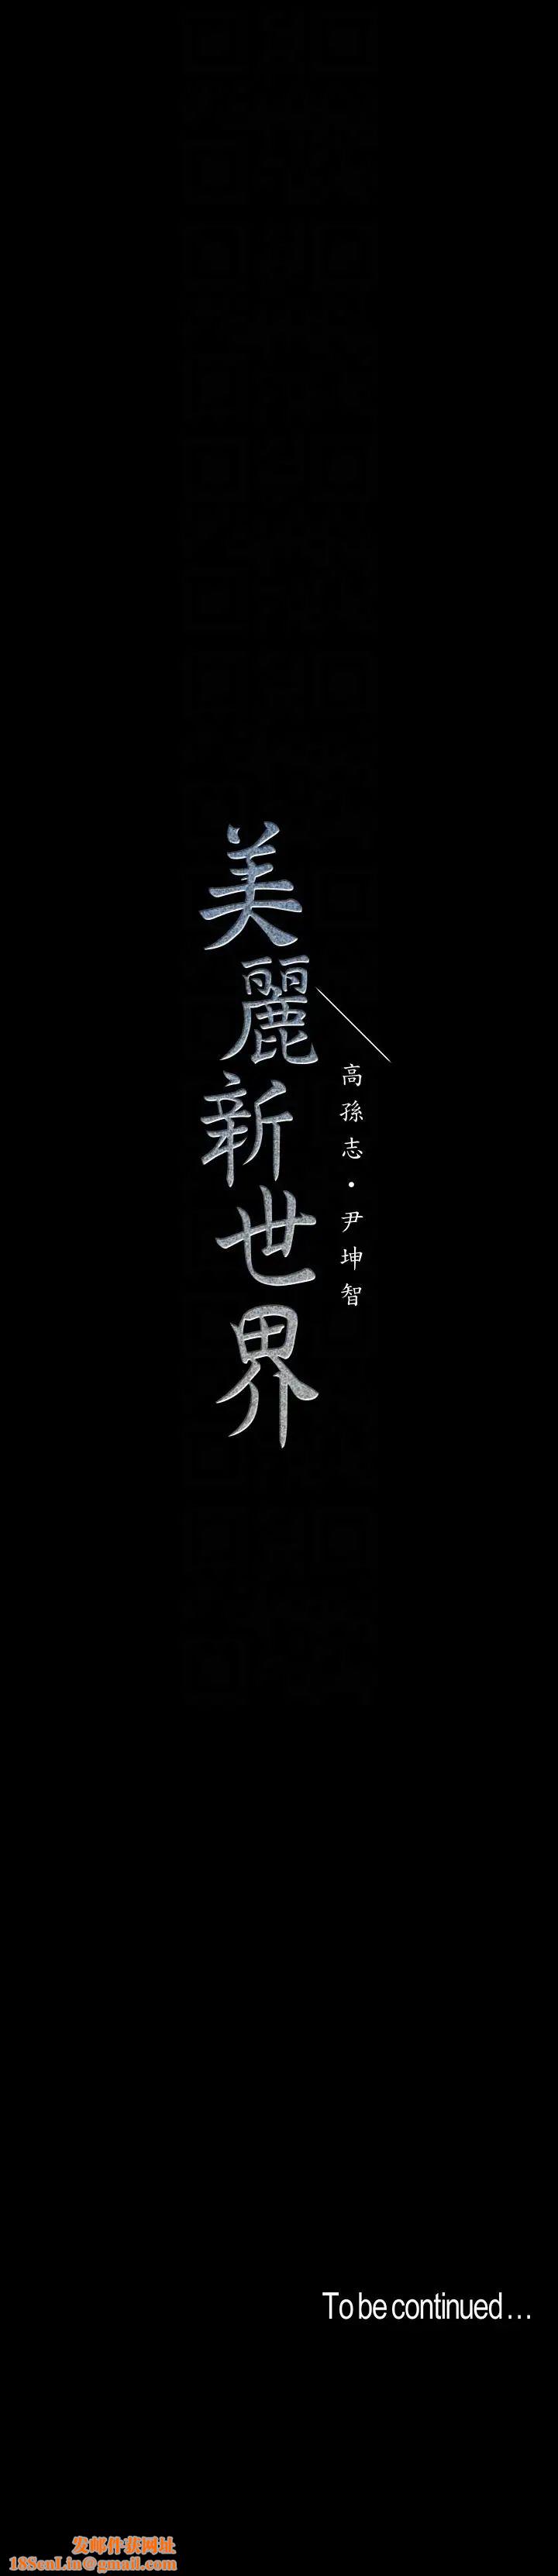 美麗新世界
高孫志・尹坤智
To be continued...
发邮件获网址
18SonLin@gmail.com